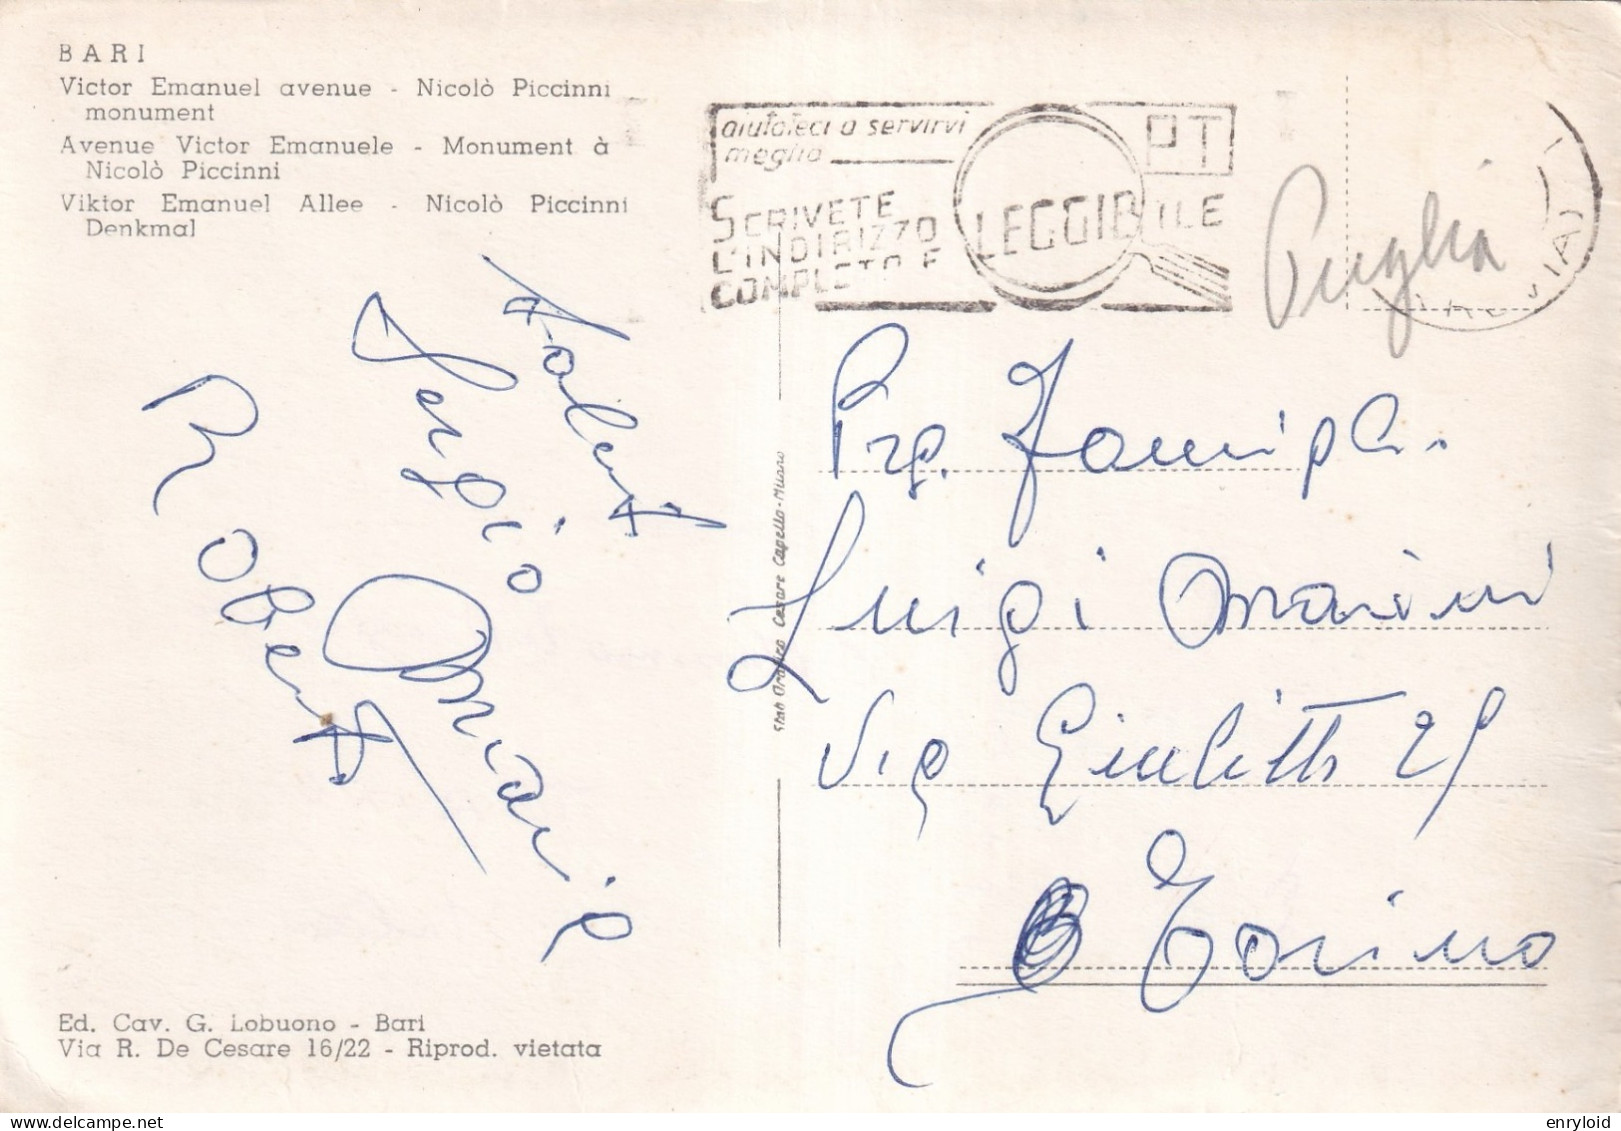 BARI
Victor Emanuel avenue - Nicolò Piccinni
monument
Avenue Victor Emanuele - Monument à
Nicolò Piccinni
Viktor Emanuel Allee - Nicolò Piccinni
Denkmal
aiutateci a servirvi
meglio
PT
SCRIVETE
L'INDIRIZZO
COMPLETO E
LEGGIBILE
Puglia
Saluti
Sergio
Maria
Roberto
Stab Grafico Cesare Capello - Milano
Preg. Famiglia
Luigi Marini
Via Giulitti 25
Torino
Ed. Cav. G. Lobuono - Bari
Via R. De Cesare 16/22 - Riprod. vietata
www.delcampe.net
enryloid